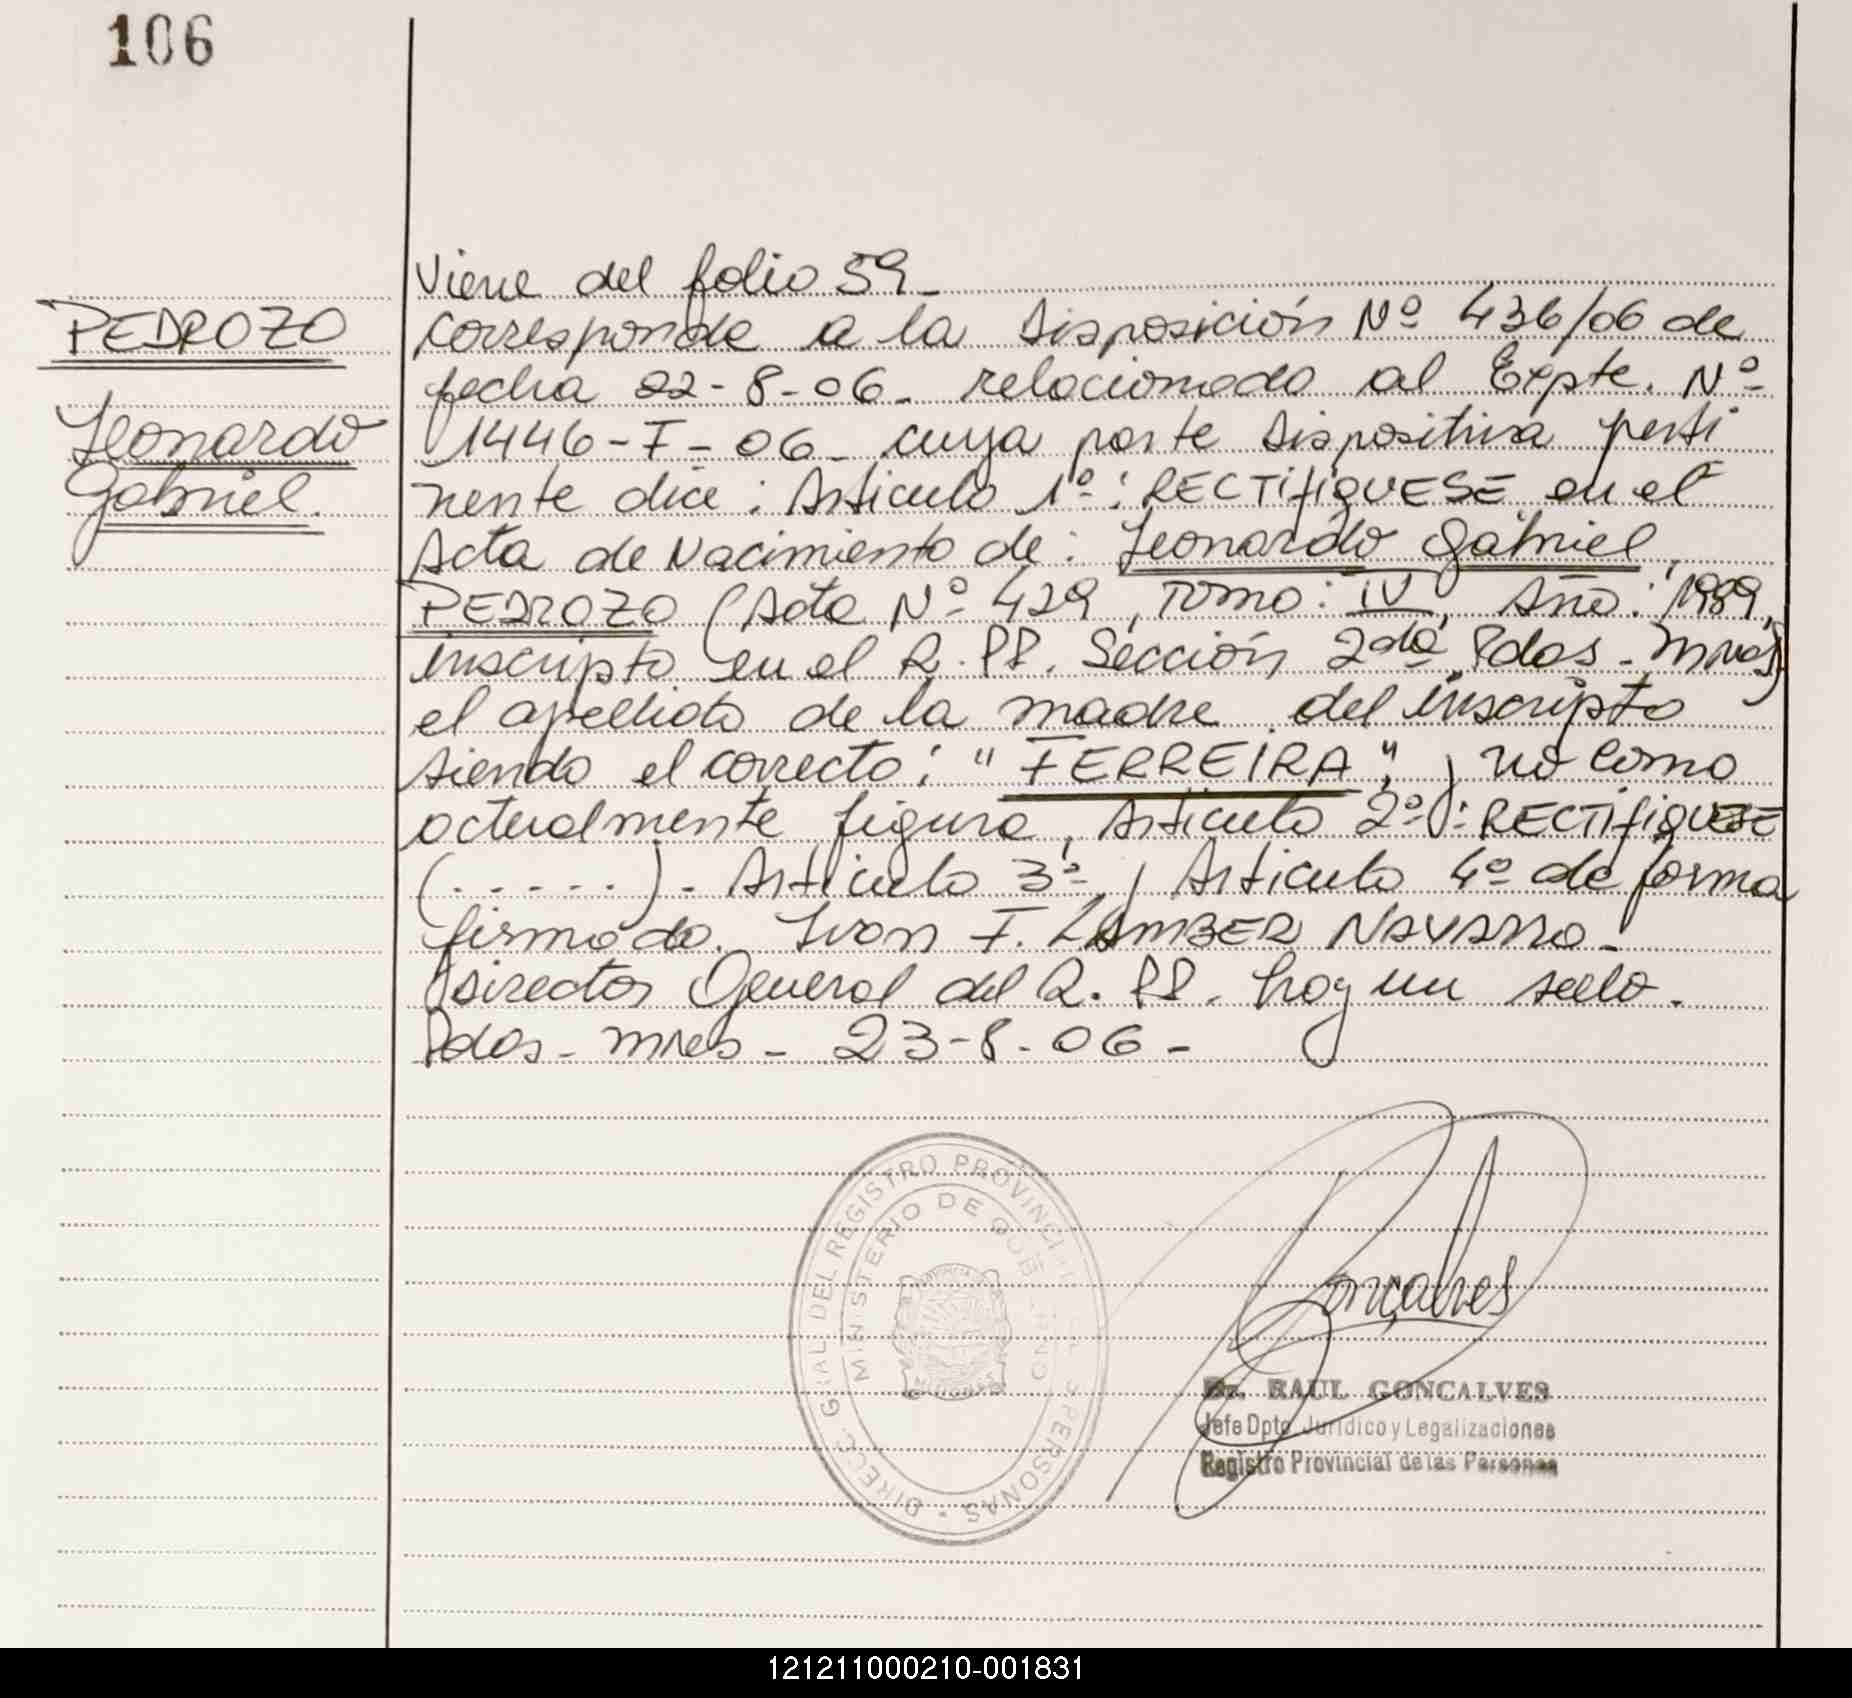 106
PEDROZO
Leonardo
Gabriel.
Viene del folio 59_
Corresponde a la Disposición Nº 436/06 de
fecha 22-8-06_ relacionado al Expte. Nº
1446-F-06_ cuya parte dispositiva perti
nente dice: Articulo 1º: RECTIFIQUESE en el
Acta de Nacimiento de: Leonardo Gabriel
PEDROZO (Acta Nº 429, Tomo: IV, Año: 1989,
inscripto en el R.PP. Sección 2da Pdas-Mnes)
el apellido de la madre del inscripto
siendo el correcto: "FERREIRA", y no como
actualmente figura, Articulo 2º: RECTIFIQUESE
(.....)- Articulo 3º y Articulo 4º de forma
firmado. Ivon F. LAMBER NAVARRO-
Director General del R.PP. hay un sello.
Pdas-Mnes- 23-8-06-
DIRECC. GRAL DEL REGISTRO PROVINCIAL PERSONAS
MINISTERIO DE GOBIERNO
Gonçalves
Dr. RAUL GONCALVES
Jefe Dpto Jurídico y Legalizaciones
Registro Provincial de las Personas
121211000210-001831